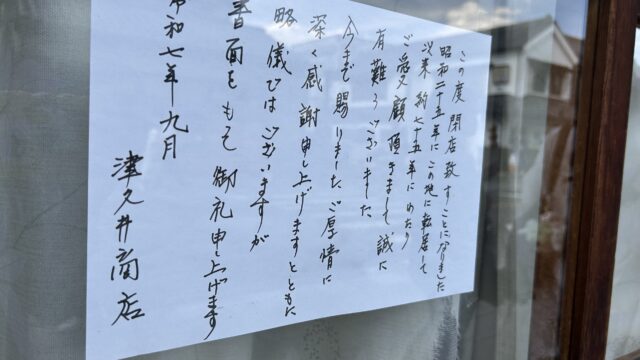 この度閉店致すことになりました
昭和二十五年にこの地に転居して
以来約七十五年にわたり
ご愛顧頂きまして誠に
有難うございました
今まで賜りましたご厚情に
深く感謝申し上げますとともに
略儀ではございますが
書面をもって御礼申し上げます
令和七年九月
津久井商店